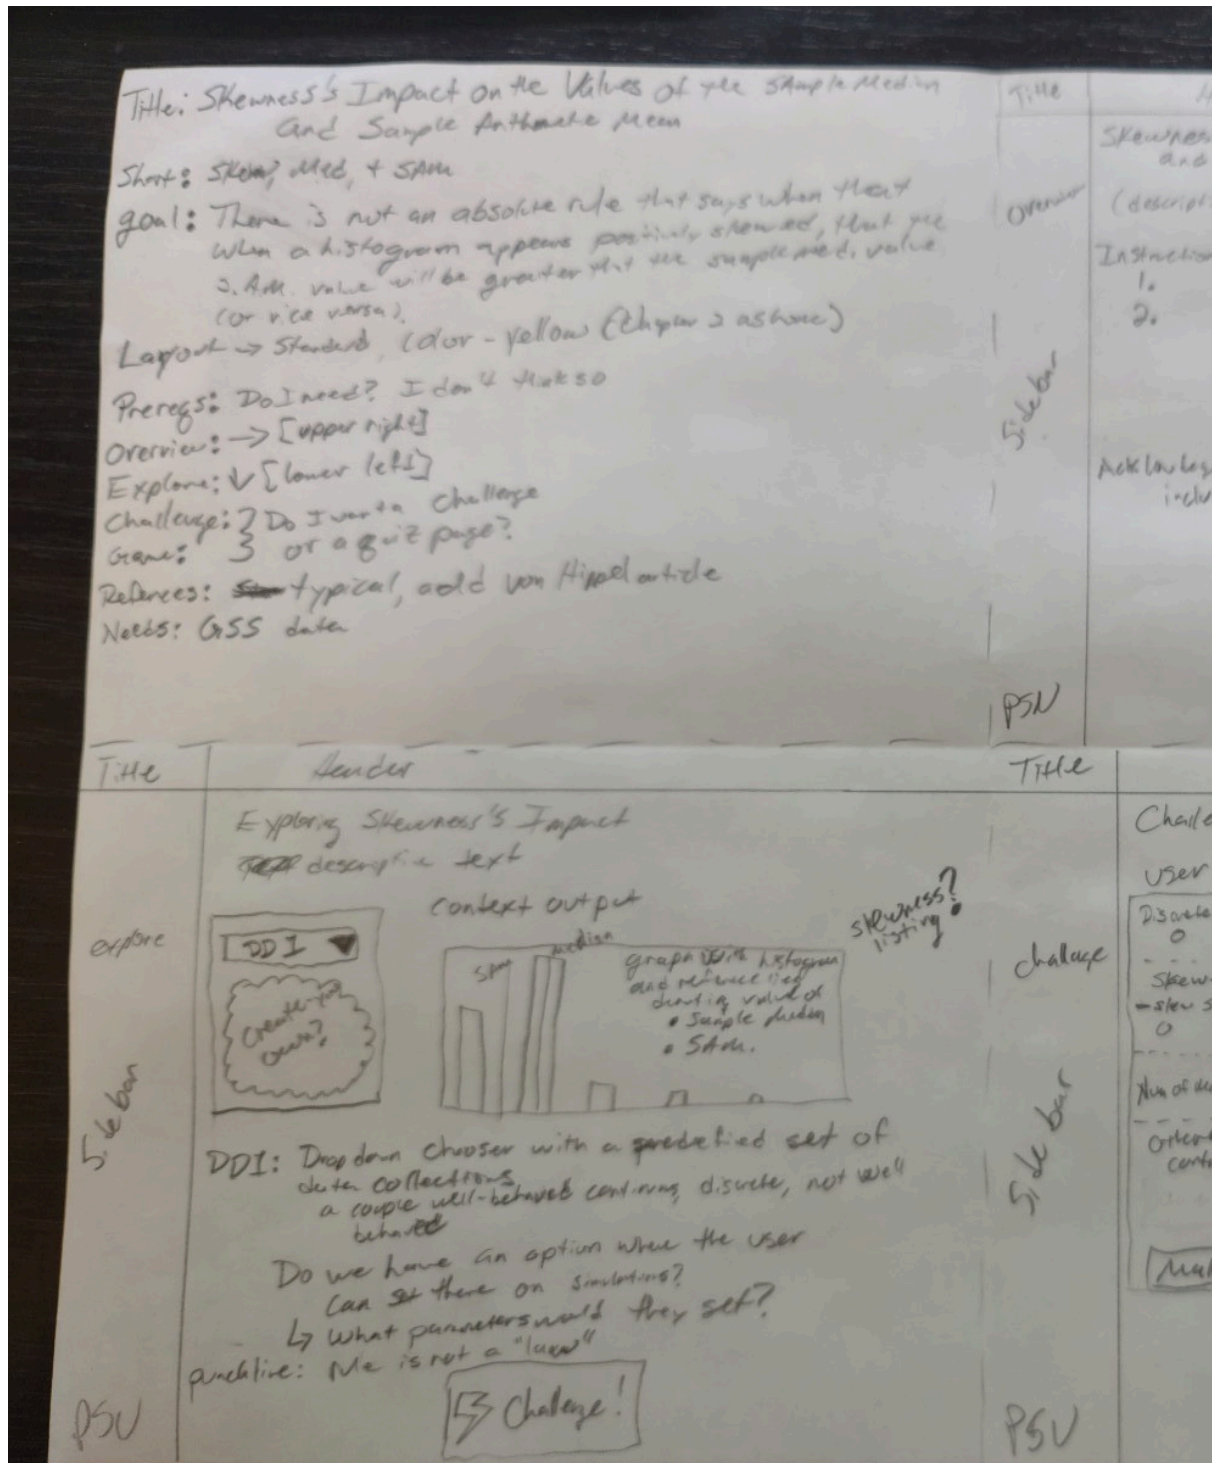 Title: Skewness's Impact on the Values of the Sample Median
and Sample Arithmetic Mean
Short: Skew, Med, + SAM
goal: There is not an absolute rule that says when that
when a histogram appears positively skewed, that the
S. AM. value will be greater that the sample med. value
(or vice versa).
Layout → Standard, Color - yellow (Chapter 2 as home)
Prereqs: Do I need? I don't think so
Overview: → [upper right]
Explore: ↓ [lower left]
Challenge: } Do I want a challenge
Game: } or a quiz page?
References: typical, add von Hippel article
Needs: GSS data
Title
Skewness
and
Overview
(descripti
Instruction
1.
2.
Side bar
Acknowledg
inclu
PSU
Title
Header
Exploring Skewness's Impact
descriptive text
context output
skewness?
listing
explore
DDI
Create-your
own?
SAM
median
graph with histogram
and reference lines
denoting value of
• Sample Median
• SAM.
Side bar
DDI: Drop down chooser with a predefied set of
data collections
a couple well-behaved continuous, discrete, not well
behaved
Do we have an option where the user
can set there on simulations?
↳ What parameters would they set?
punchline: is not a "law"
Challenge!
PSU
Title
Challe
User
Discrete
challenge
Skewn
-skew s
Num of
Side bar
Mak
PSU